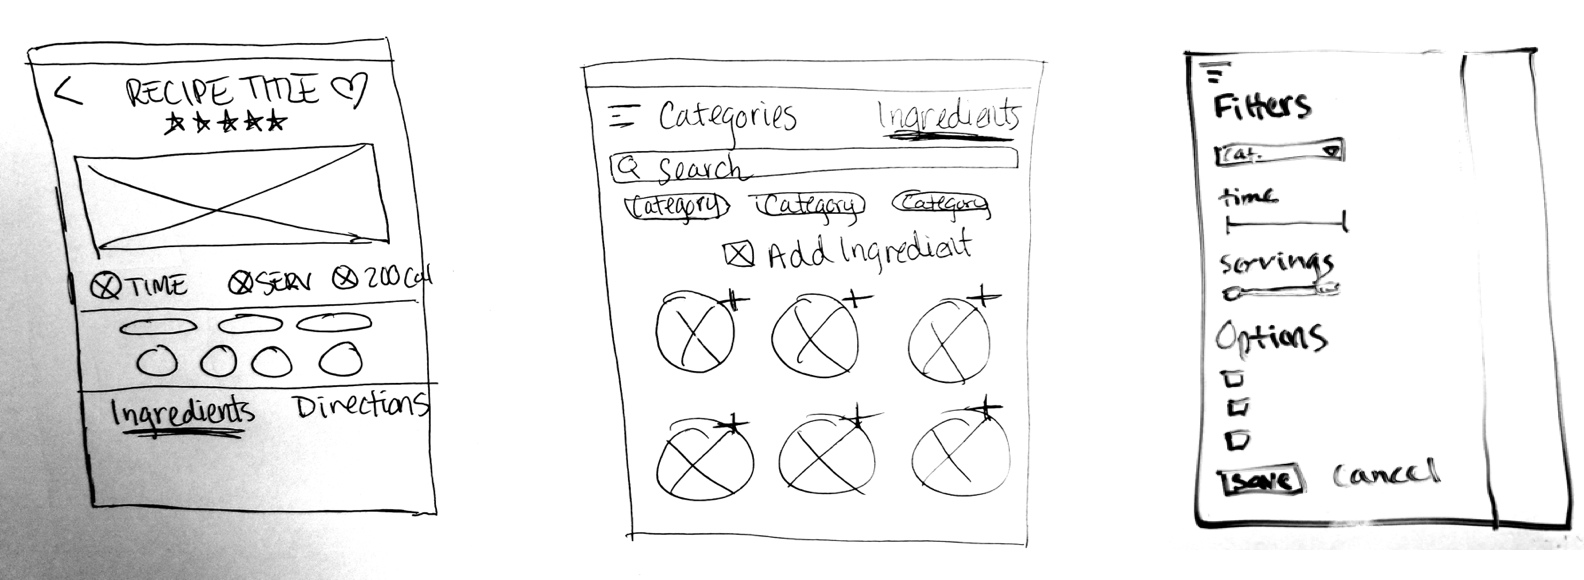 RECIPE TITLE
TIME SERV 200 Cal
Ingredients Directions
Categories Ingredients
Search
Category Category Category
Add Ingredient
Filters
Cat.
time
servings
Options
save cancel